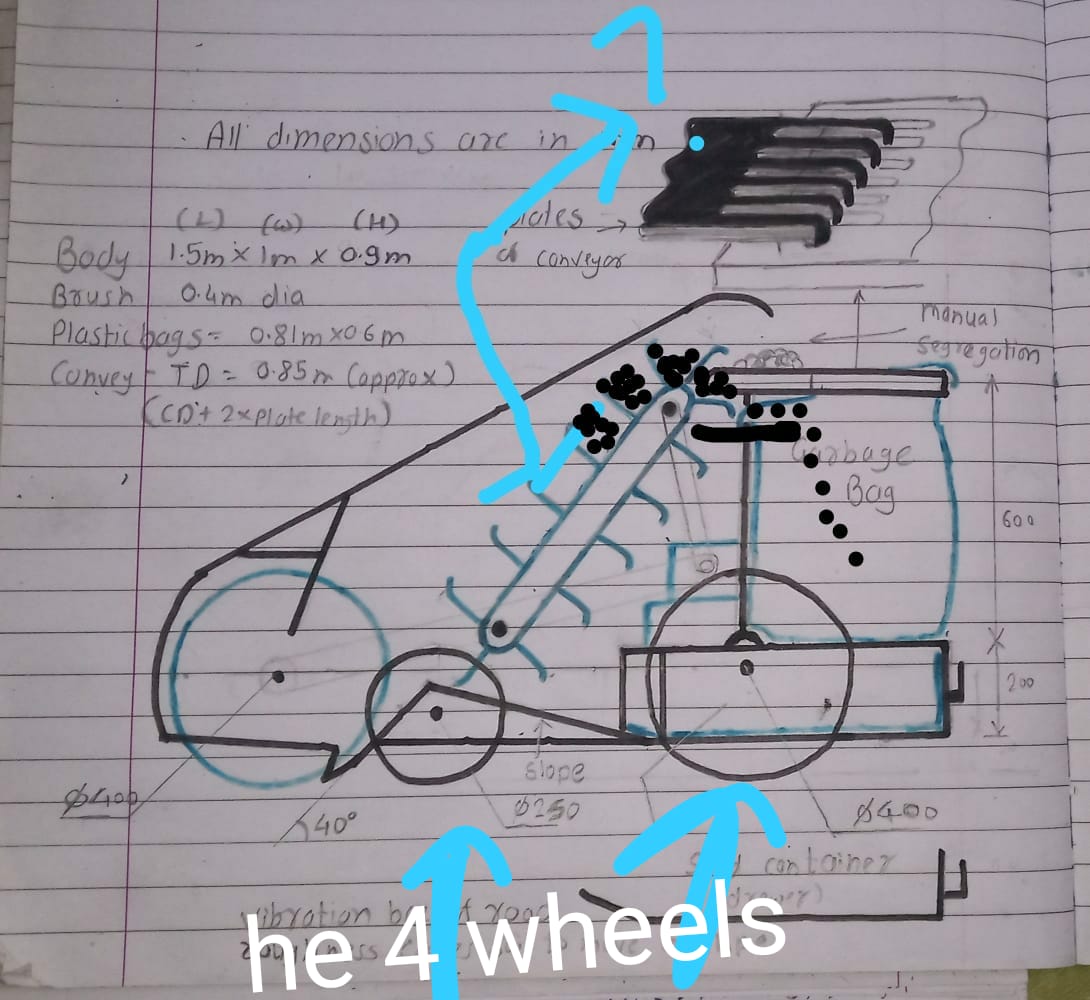 All dimensions are in
(L) (W) (H)
Body 1.5m × 1m × 0.9m
Brush 0.4m dia
Plastic bags = 0.81m × 0.6m
Convey - TD = 0.85m (approx)
(CD + 2 × plate length)
plates →
of conveyor
manual
segregation
Garbage
Bag
600
200
slope
Ø400
40°
Ø250
Ø400
container
vibration
he 4 wheels